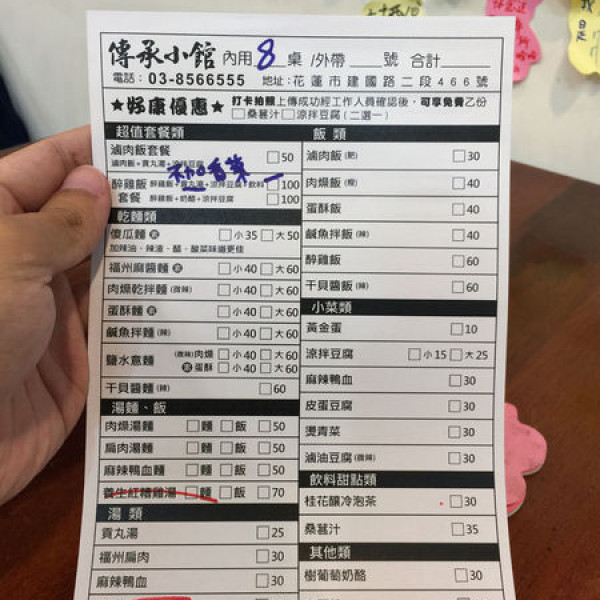 傳承小館 內用 8 桌 /外帶 號 合計
電話：03-8566555 地址：花蓮市建國路二段466號
★好康優惠★ 打卡拍照上傳成功經工作人員確認後，可享免費乙份
□桑葚汁□涼拌豆腐(二選一)
超值套餐類
滷肉飯套餐 □50
滷肉飯+貢丸湯+涼拌豆腐
不加香菜
醉雞飯 醉雞飯+貢丸湯+涼拌豆腐+飲料 □100
套餐 醉雞飯+奶酪+涼拌豆腐 □100
乾麵類
傻瓜麵 素 □小35 □大50
加辣油、辣渣、醋、酸菜味道更佳
福州麻醬麵 素 □小40 □大60
肉燥乾拌麵(微辣) □小40 □大60
蛋酥麵 素 □小40 □大60
鹹魚拌麵(辣) □小40 □大60
鹽水意麵 (微辣)肉燥 □小40 □大60
素 蛋酥 □小40 □大60
干貝醬麵(辣) □60
湯麵、飯
肉燥湯麵 □麵 □飯 □50
扁肉湯麵 □麵 □飯 □50
麻辣鴨血麵 □麵 □飯 □50
養生紅糟雞湯 □麵 □飯 □70
湯類
貢丸湯 □25
福州扁肉 □30
麻辣鴨血 □30
飯類
滷肉飯(肥) □30
肉燥飯(瘦) □40
蛋酥飯 □40
鹹魚拌飯(辣) □40
醉雞飯 □60
干貝醬飯(辣) □60
小菜類
黃金蛋 □10
涼拌豆腐 □小15 □大25
麻辣鴨血 □30
皮蛋豆腐 □30
燙青菜 □30
滷油豆腐(微辣) □30
飲料甜點類
桂花釀冷泡茶 □30
桑葚汁 □35
其他類
樹葡萄奶酪 □30